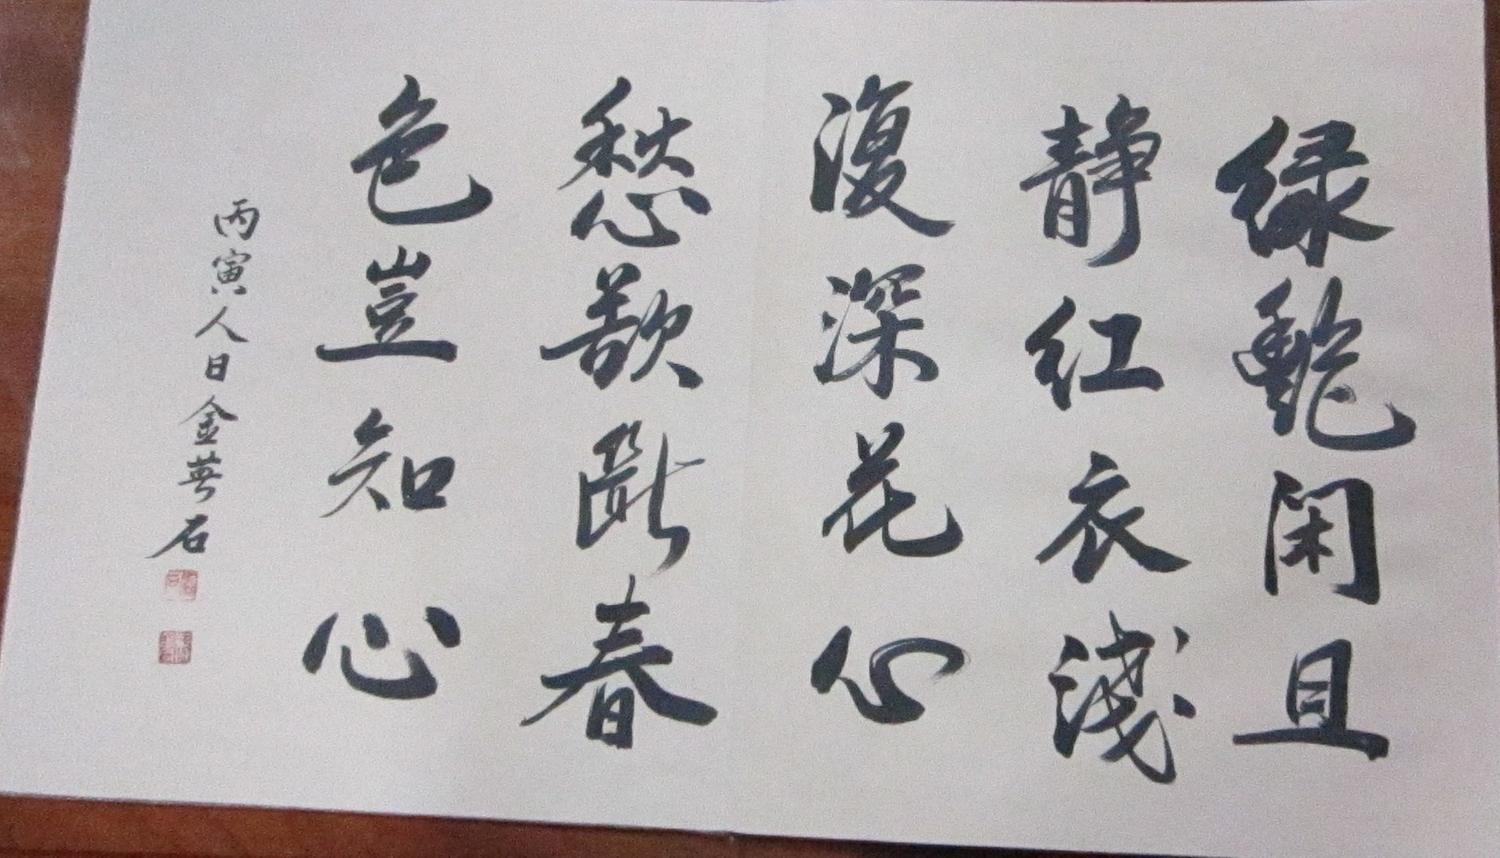 绿艷闲且
静红衣淺
復深花心
愁欲斷春
色豈知心
丙寅人日金石